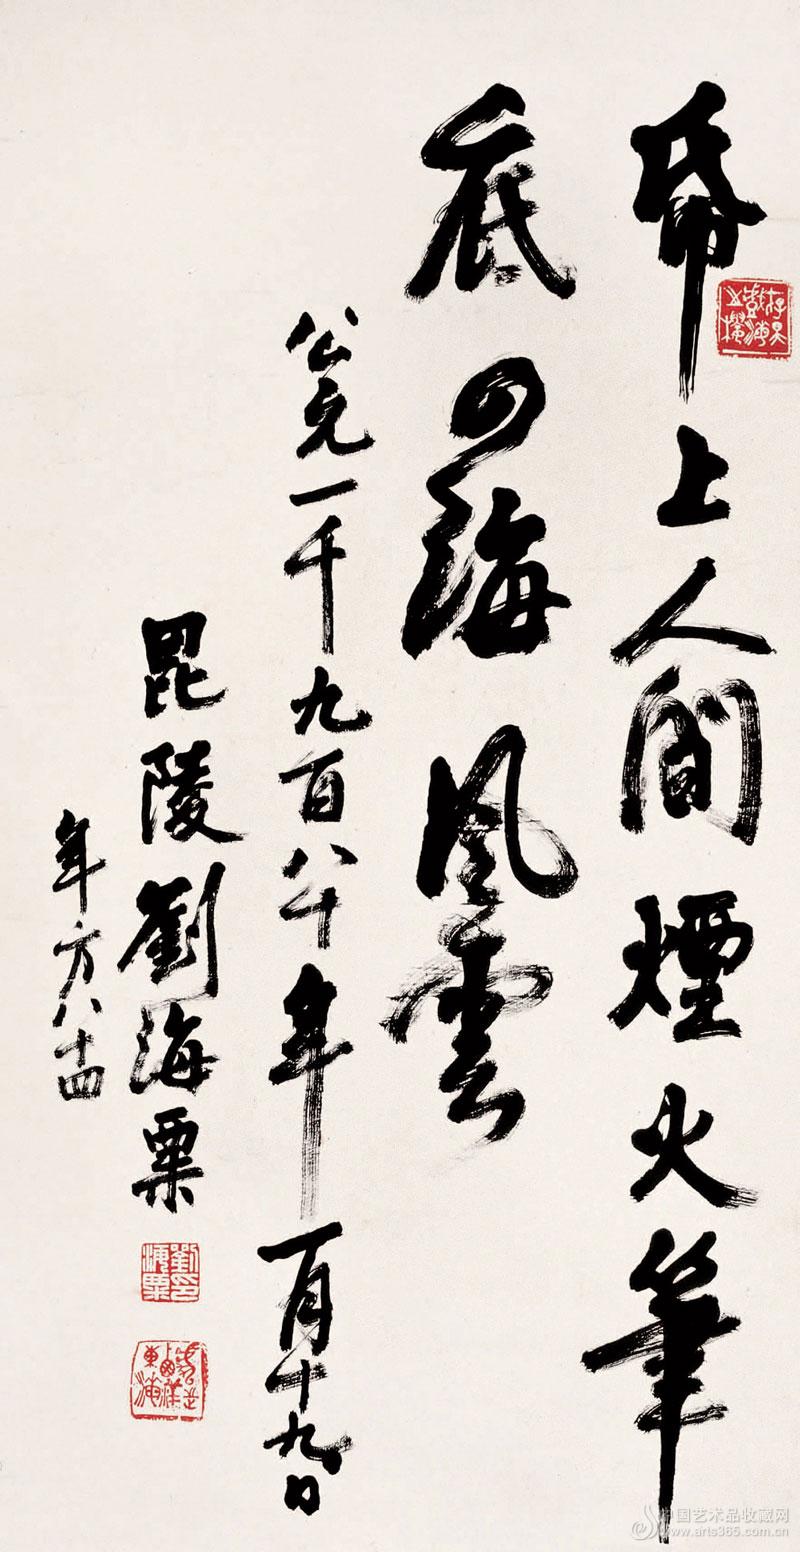 帋上人間煙火筆
底四海風雲
公元一千九百八十年一月十九日
毘陵劉海粟
年方八十四
劉印海粟
中国艺术品收藏网
www.arts365.com.cn